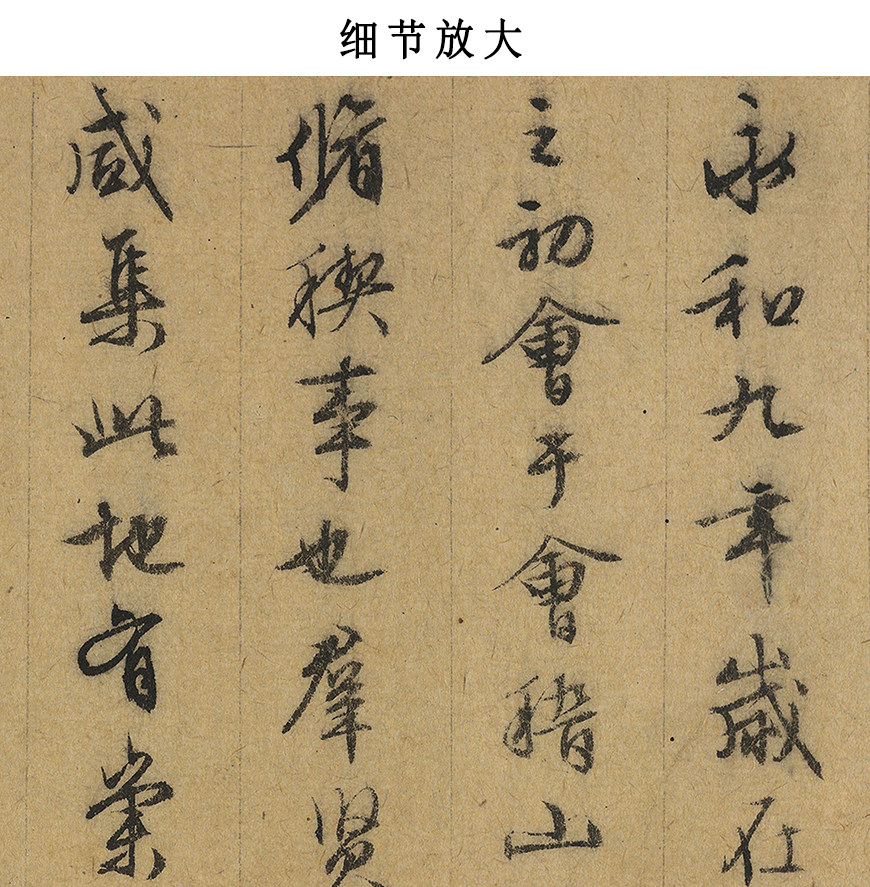 细节放大
永和九年歲在
之初會于會稽山
脩稧事也羣賢
咸集此地有崇